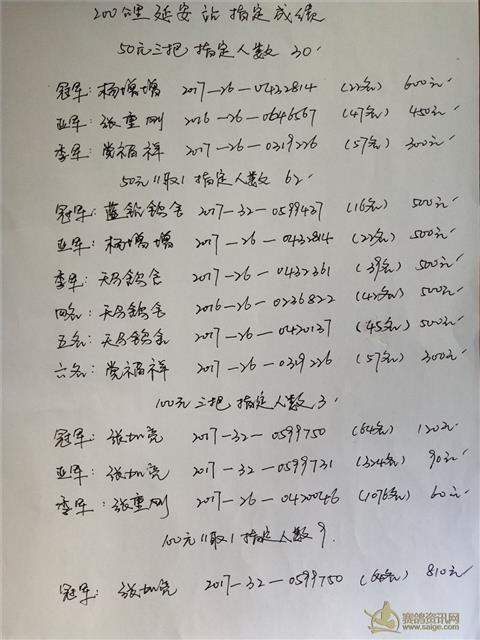 200公里延安站指定成绩
50元三把指定人数30
冠军: 杨增增 2017-26-0432814 (22名) 600元
亚军: 张重刚 2016-26-0646567 (47名) 450元
季军: 党福祥 2017-26-0319226 (57名) 300元
50元11取1指定人数62
冠军: 蓝 鸽舍 2017-32-0599437 (16名) 500元
亚军: 杨增增 2017-26-0432814 (22名) 500元
季军: 天 鸽舍 2017-26-0432361 (39名) 500元
四名: 天 鸽舍 2016-26-0236822 (42名) 500元
五名: 天 鸽舍 2017-26-0420137 (45名) 500元
六名: 党福祥 2017-26-0319226 (57名) 300元
100元三把指定人数3
冠军: 张加亮 2017-32-0599750 (64名) 120元
亚军: 张加亮 2017-32-0599731 (324名) 90元
季军: 张重刚 2017-26-0420046 (1076名) 60元
100元11取1指定人数9
冠军: 张加亮 2017-32-0599750 (64名) 810元
赛鸽资讯网
www.saige.com